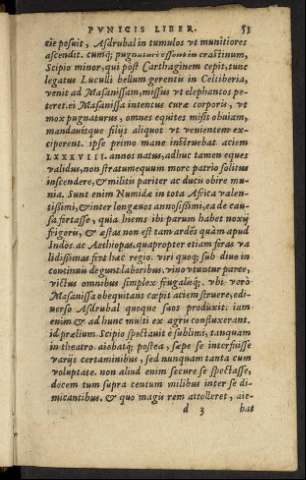 PVNICIS LIBER. 53
cie posuit, Asdrubal in tumulos vt munitiores
ascendit. cumq; pugnaturi essent in crastinum,
Scipio minor, qui post Carthaginem cepit, tunc
legatus Luculli bellum gerentis in Celtiberia,
venit ad Masanissam, missus vt elephantos pe-
teret. ei Masanissa intentus curæ corporis, vt
mox pugnaturus, omnes equites misit obuiam,
mandauitque filijs aliquot vt venientem ex-
ciperent. ipse primo mane instruebat aciem
LXXXVIII. annos natus, adhuc tamen eques
validus, non stratumequum more patrio solitus
inscendere, & militis pariter ac ducis obire mu-
nia. Sunt enim Numidæ in tota Africa valen-
tissimi, & inter longæuos annosissimi, ea de cau-
sa fortasse, quia hiems ibi parum habet noxij
frigoris, & æstas non est tam ardēs quàm apud
Indos ac Aethiopas. quapropter etiam feras va
lidissimas fert hæc regio. viri quoq; sub diuo in
continuis degunt laboribus. vino vtūtur parce,
victus omnibus simplex frugalisq;. vbi verò
Masanissa obequitans cœpit aciem struere, ed i-
uerso Asdrubal quoque suos produxit. iam
enim & ad hunc multi ex agris confluxerant.
id prælium Scipio spectauit è sublimi, tanquam
in theatro. aiebatq; postea, sæpe se interfuisse
varijs certaminibus, sed nunquam tanta cum
voluptate. non aliud enim secure se spectasse,
decem tum supra centum milibus inter se di-
micantibus. & quo magis rem attolleret, aie-
d 3 bat